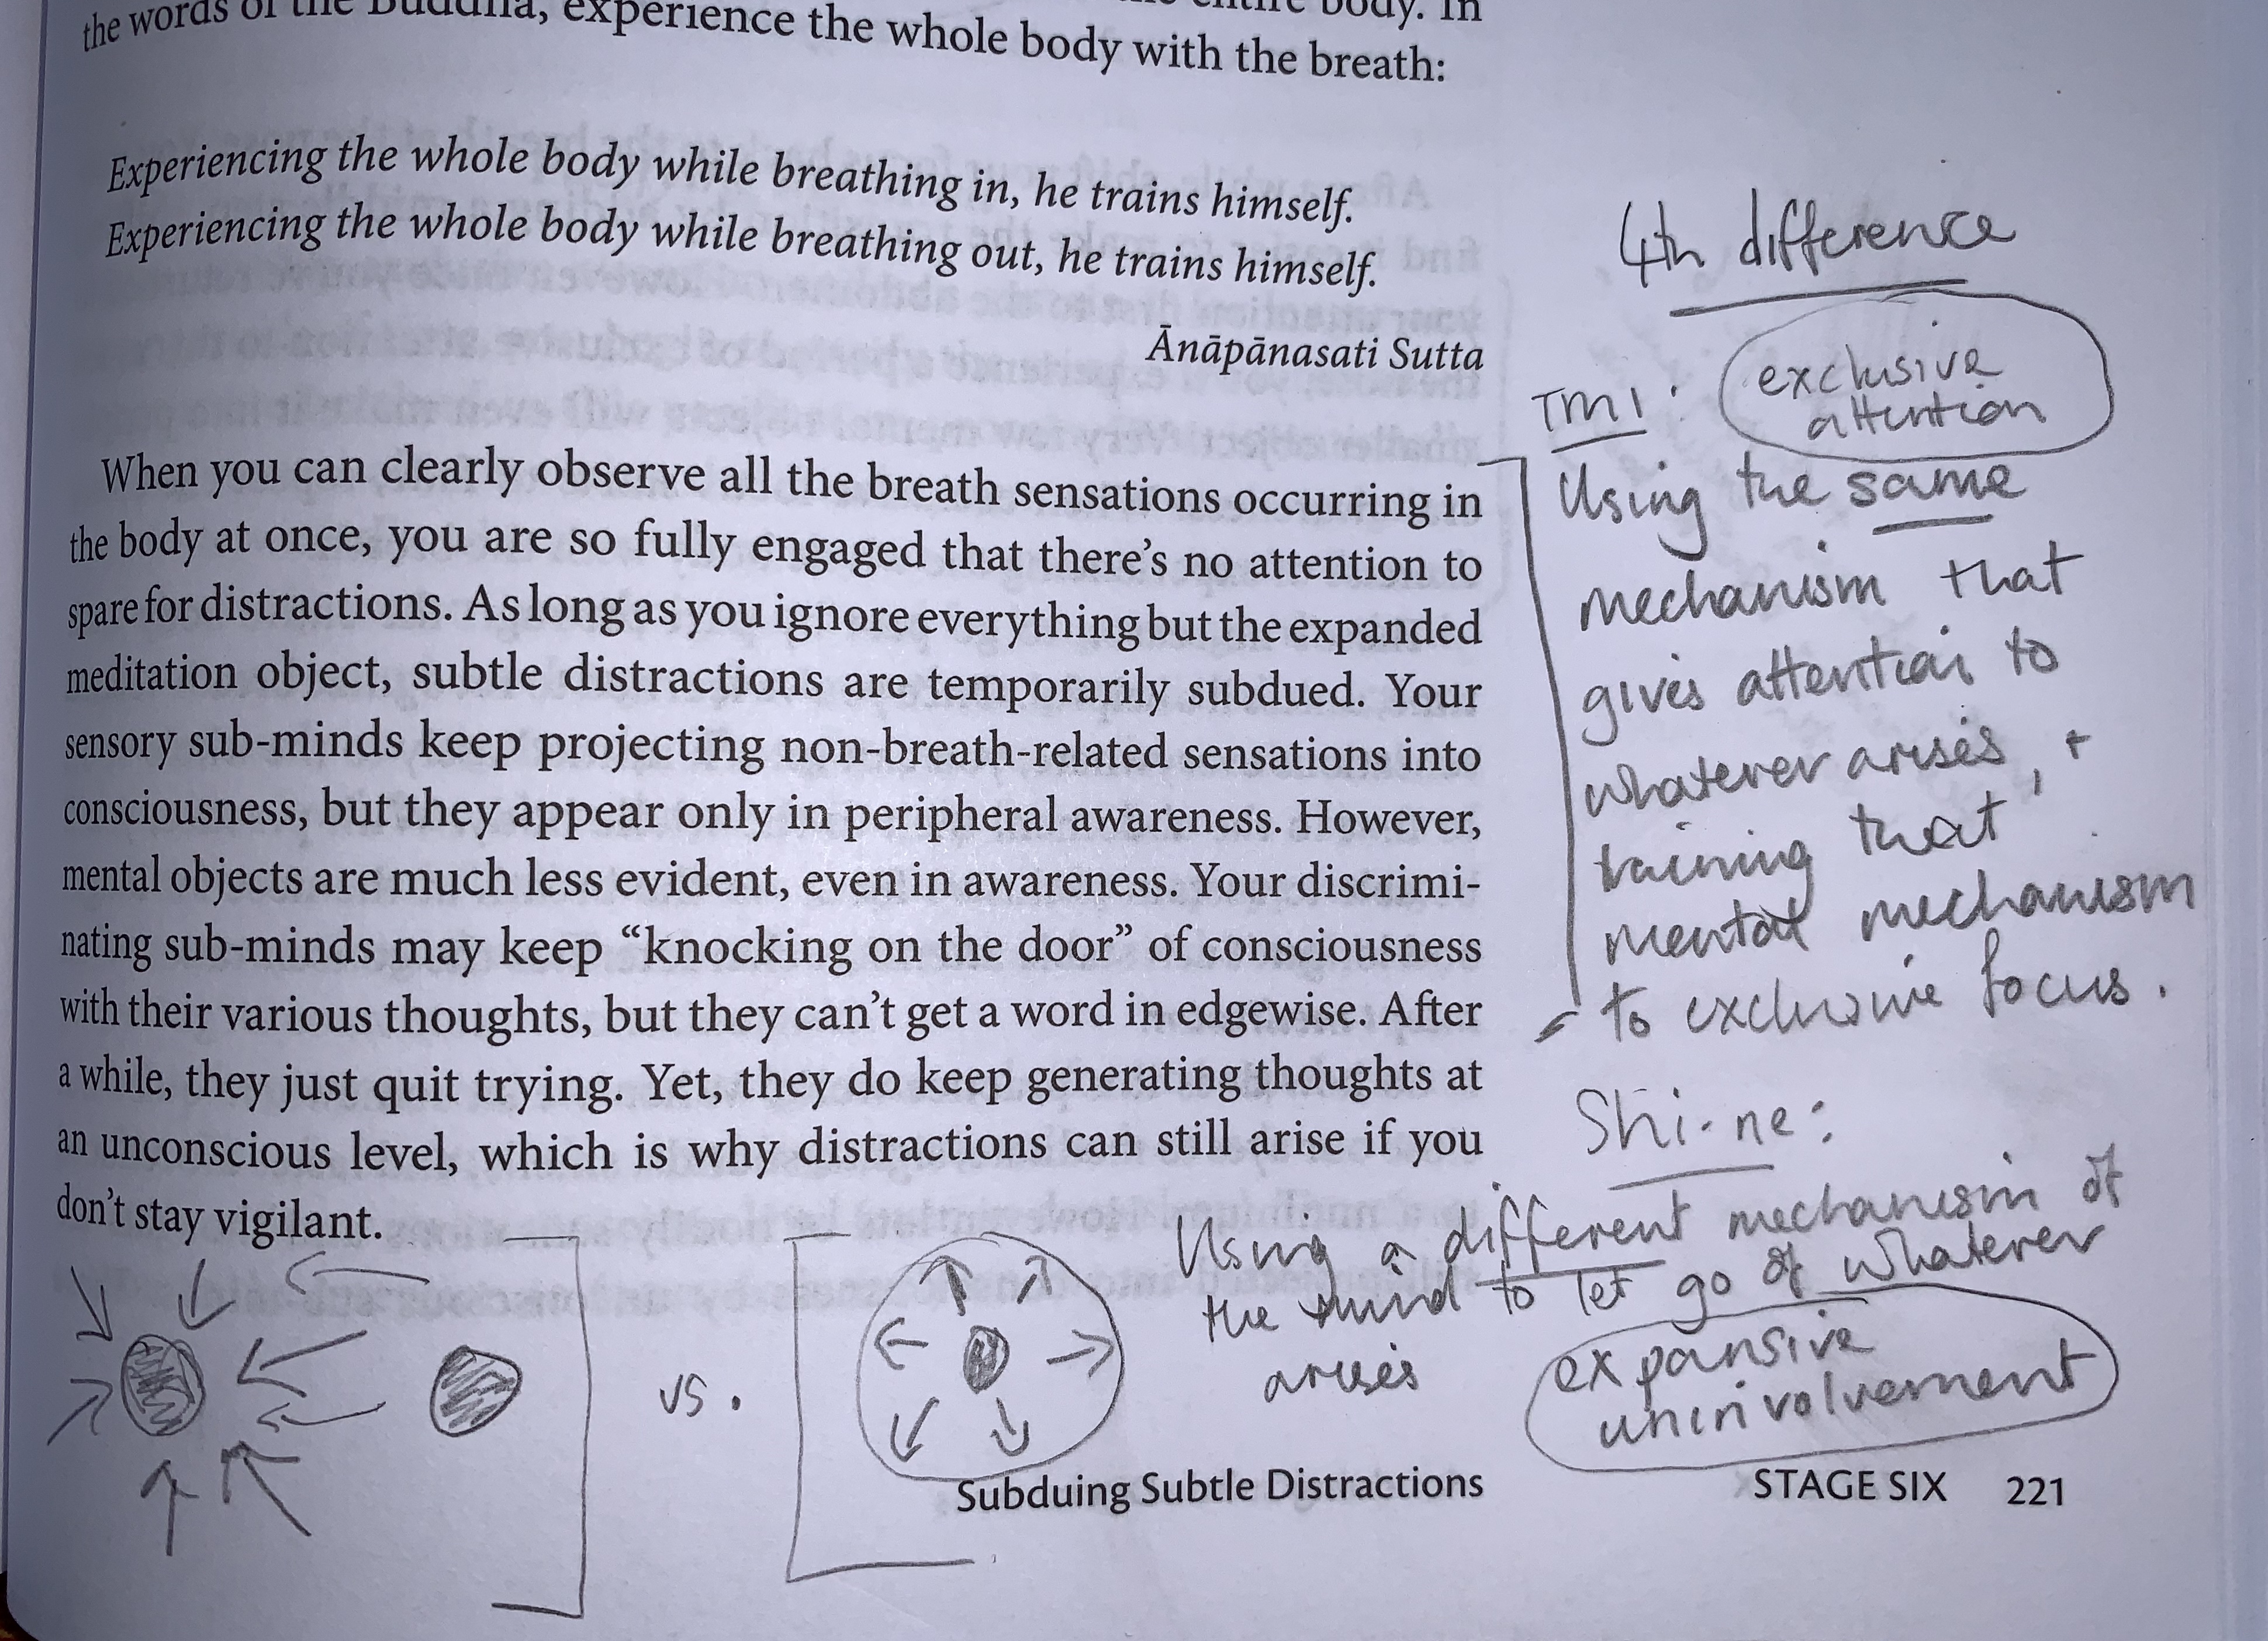 the words of the Buddha, experience the whole body with the breath:
Experiencing the whole body while breathing in, he trains himself.
Experiencing the whole body while breathing out, he trains himself.
Ānāpānasati Sutta
When you can clearly observe all the breath sensations occurring in
the body at once, you are so fully engaged that there's no attention to
spare for distractions. As long as you ignore everything but the expanded
meditation object, subtle distractions are temporarily subdued. Your
sensory sub-minds keep projecting non-breath-related sensations into
consciousness, but they appear only in peripheral awareness. However,
mental objects are much less evident, even in awareness. Your discrimi-
nating sub-minds may keep “knocking on the door” of consciousness
with their various thoughts, but they can't get a word in edgewise. After
a while, they just quit trying. Yet, they do keep generating thoughts at
an unconscious level, which is why distractions can still arise if you
don't stay vigilant.
4th difference
TMI: exclusive
attention
Using the same
mechanism that
gives attention to
whatever arises, +
training that
mental mechanism
to exclusive focus.
Shi-ne:
Using a different mechanism of
the mind to let go of whatever
arises
expansive
uninvolvement
vs.
Subduing Subtle Distractions STAGE SIX 221